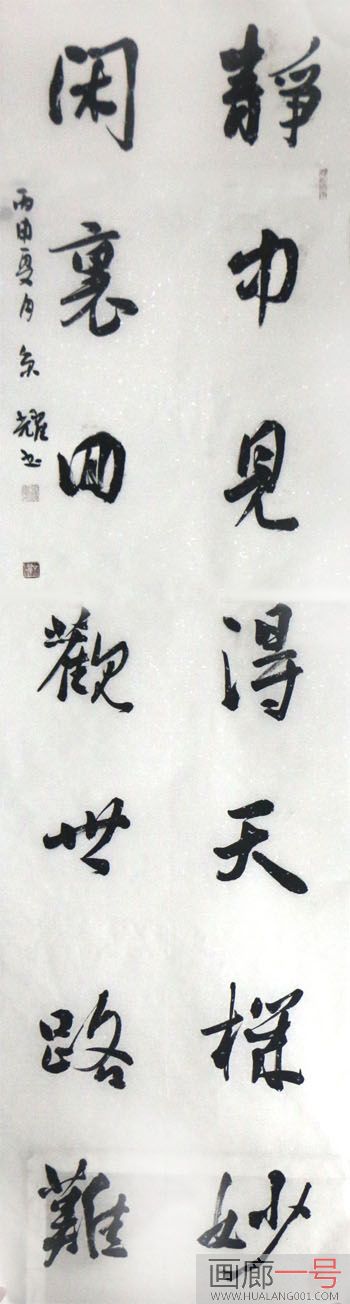 靜中見得天機妙
閑裏回觀世路難
丙申夏月京耀书
画廊一号
WWW.HUALANG001.COM